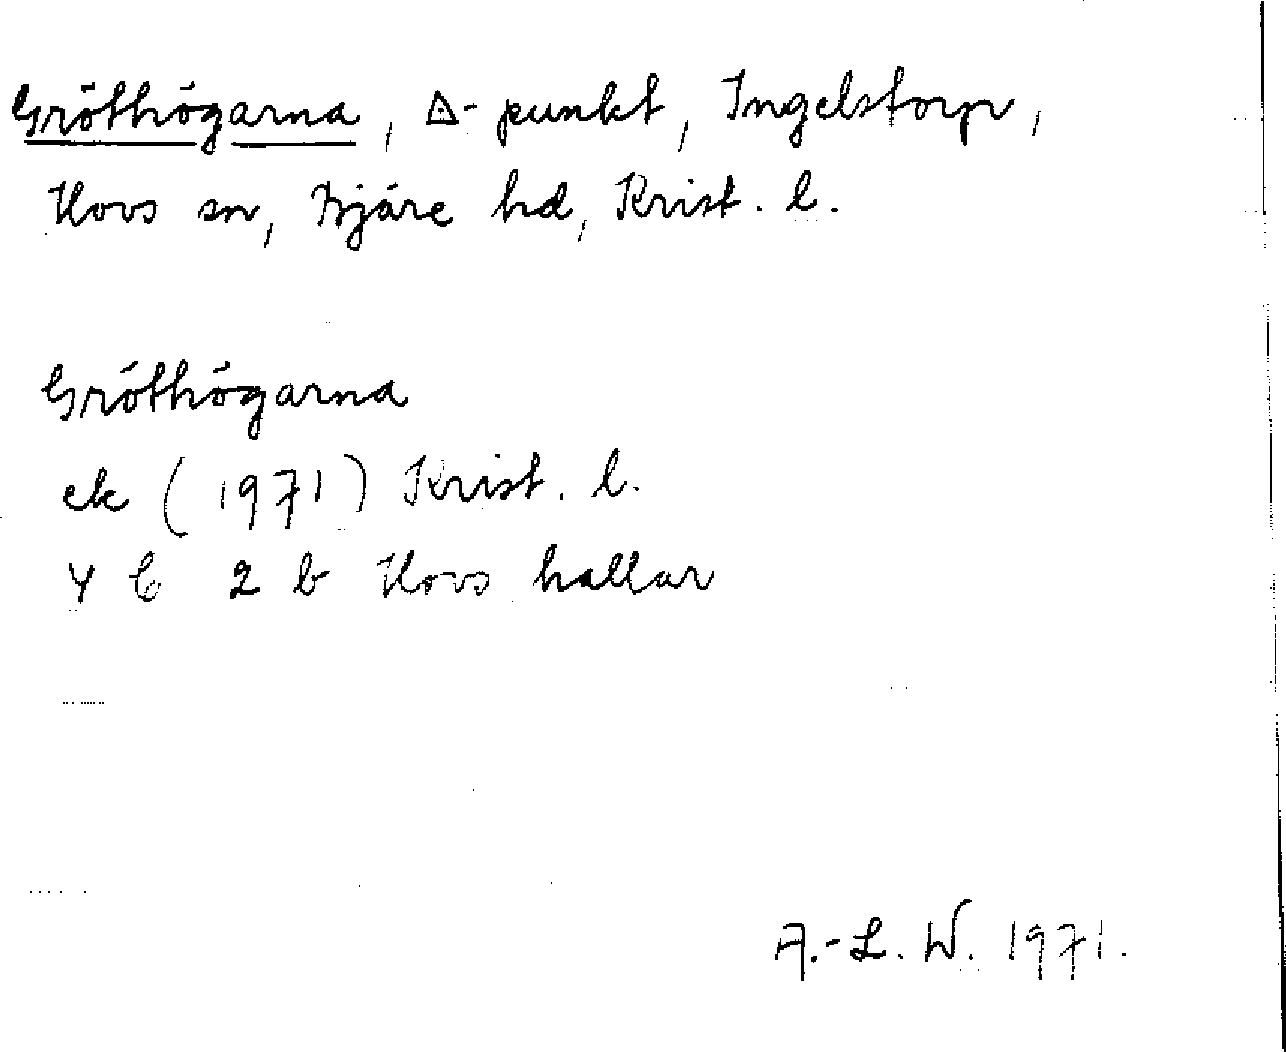 Gröthögarna, ∆-punkt, Ingelstorp,
Hovs sn, Bjäre hd, Krist. l.
Gröthögarna
ek (1971) Krist. l.
4 C 2 b Hovs hallar
A.-L. W. 1971.